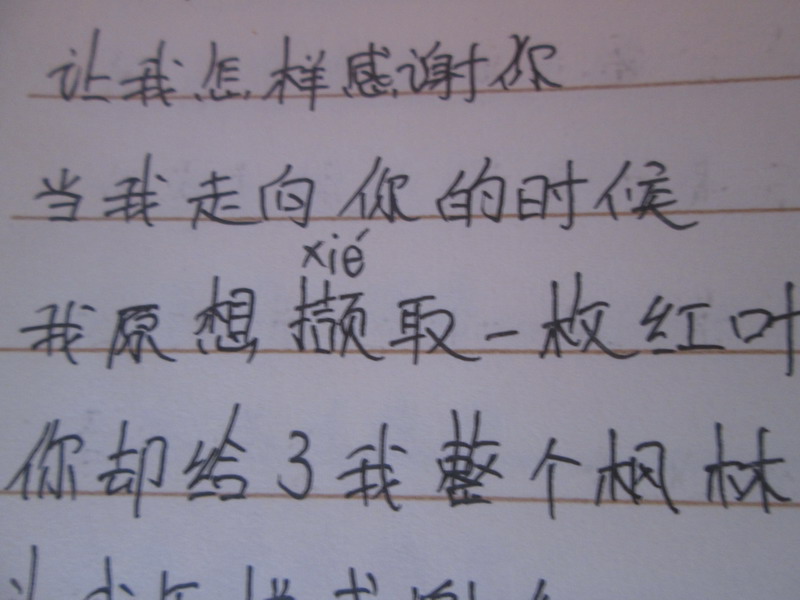 让我怎样感谢你
当我走向你的时候
xié
我原想撷取一枚红叶
你却给了我整个枫林